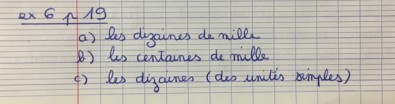 ex 6 p 19
a) les dizaines de mille
b) les centaines de mille
c) les dizaines (des unités simples)